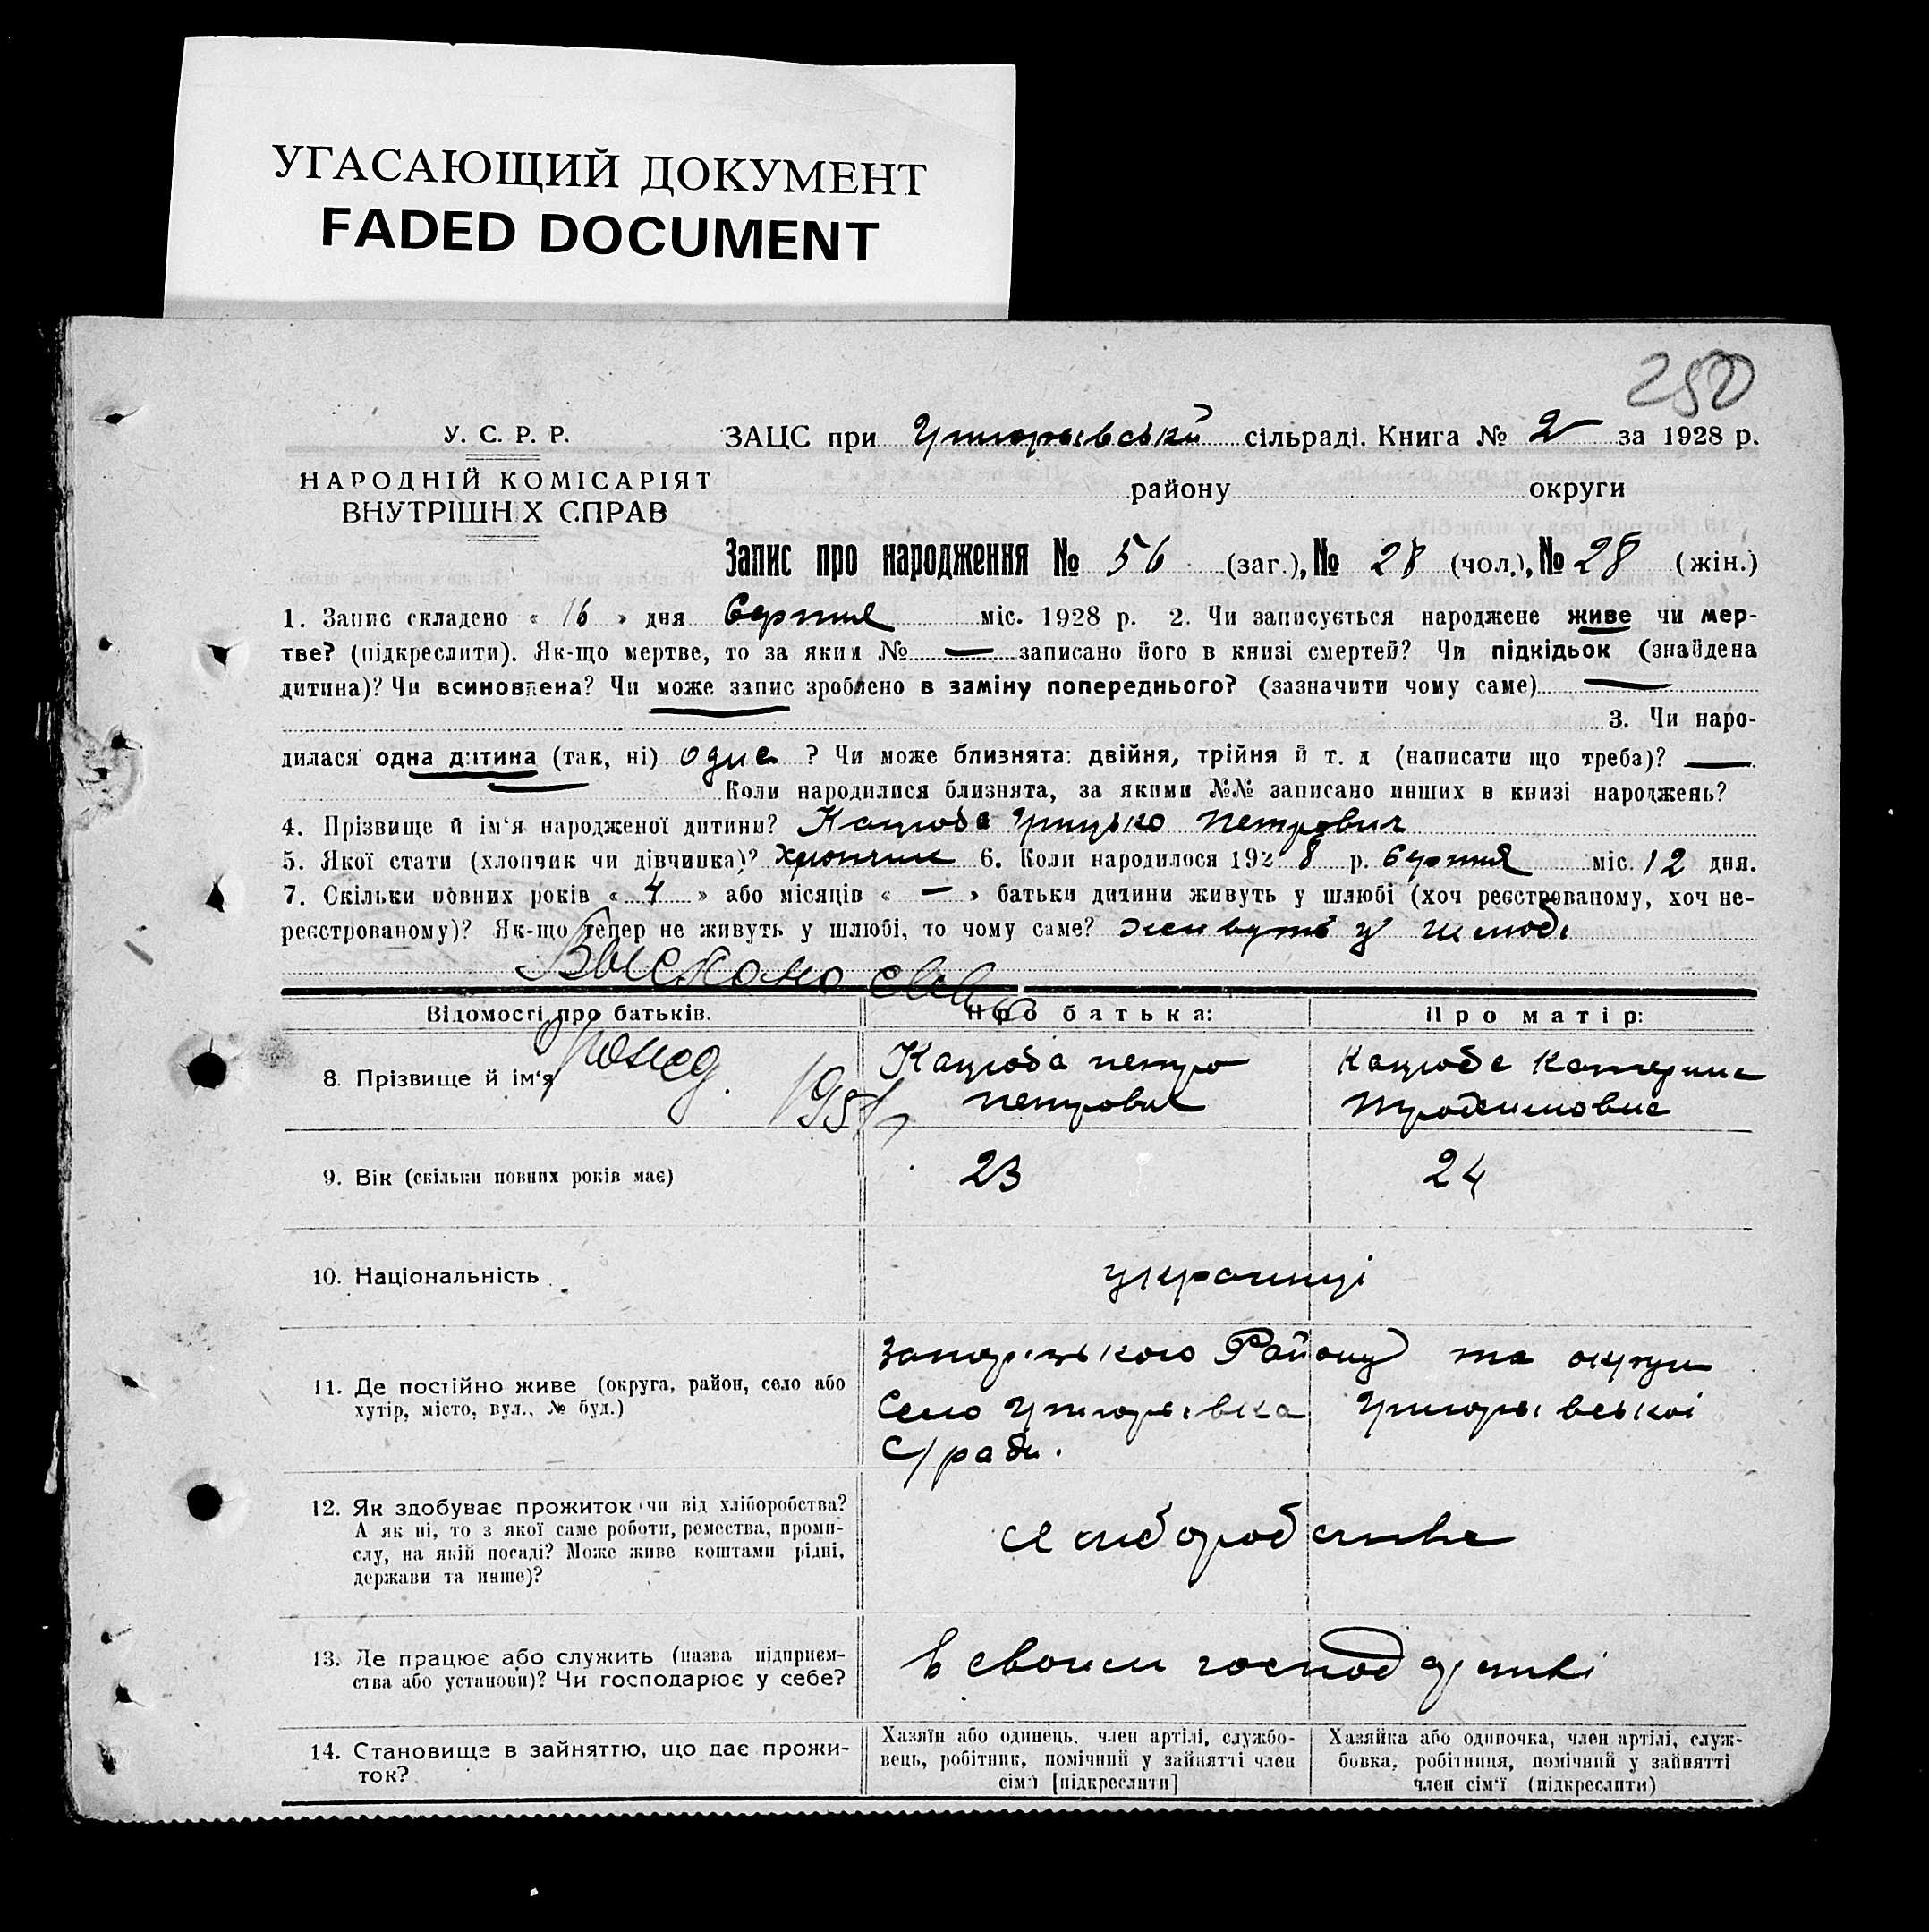 УГАСАЮЩИЙ ДОКУМЕНТ
FADED DOCUMENT
250
У. С. Р. Р.
НАРОДНІЙ КОМІСАРІЯТ
ВНУТРІШНІХ СПРАВ
ЗАЦС при сільраді. Книга № 2 за 1928 р.
району округи
Запис про народження № 56 (заг.), № 28 (чол.), № 28 (жін.)
1. Запис складено « 16 » дня Серпня міс. 1928 р. 2. Чи записується народжене живе чи мер-
тве? (підкреслити). Як-що мертве, то за яким № — записано його в книзі смертей? Чи підкідьок (знайдена
дитина)? Чи всиновлена? Чи може запис зроблено в заміну попереднього? (зазначити чому саме) —
3. Чи наро-
дилася одна дитина (так, ні) одна ? Чи може близнята: двійня, трійня й т. д (написати що треба)? —
Коли народилися близнята, за якими №№ записано инших в книзі народжень?
4. Прізвище й ім'я народженої дитини? Кацюба Грицько Петрович
5. Якої стати (хлопчик чи дівчинка)? хлопчик 6. Коли народилося 1928 р. Серпня міс. 12 дня.
7. Скільки повних років « 4 » або місяців « — » батьки дитини живуть у шлюбі (хоч реєстрованому, хоч не-
реєстрованому)? Як-що тепер не живуть у шлюбі, то чому саме? живуть у шлюбі
Відомості про батьків. Про батька: Про матір:
8. Прізвище й ім'я Кацюба Петро Кацюба Катерина
Петрович Трохимовна
1951
9. Вік (скільки повних років має) 23 24
10. Національність українці
11. Де постійно живе (округа, район, село або
хутір, місто, вул., № буд.)
Запорізького Району та округи
Село
С/ради.
12. Як здобуває прожиток чи від хліборобства?
А як ні, то з якої саме роботи, ремества, проми-
слу, на якій посаді? Може живе коштами рідні,
держави та инше)?
хліборобства
13. Де працює або служить (назва підприєм-
ства або установи)? Чи господарює у себе?
в своим господарстві
14. Становище в зайняттю, що дає прожи-
ток?
Хазяїн або одинець, член артілі, службо-
вець, робітник, помічний у зайнятті член
сім'ї [підкреслити]
Хазяйка або одиночка, член артілі, служ-
бовка, робітниця, помічний у зайнятті
член сім'ї (підкреслити)